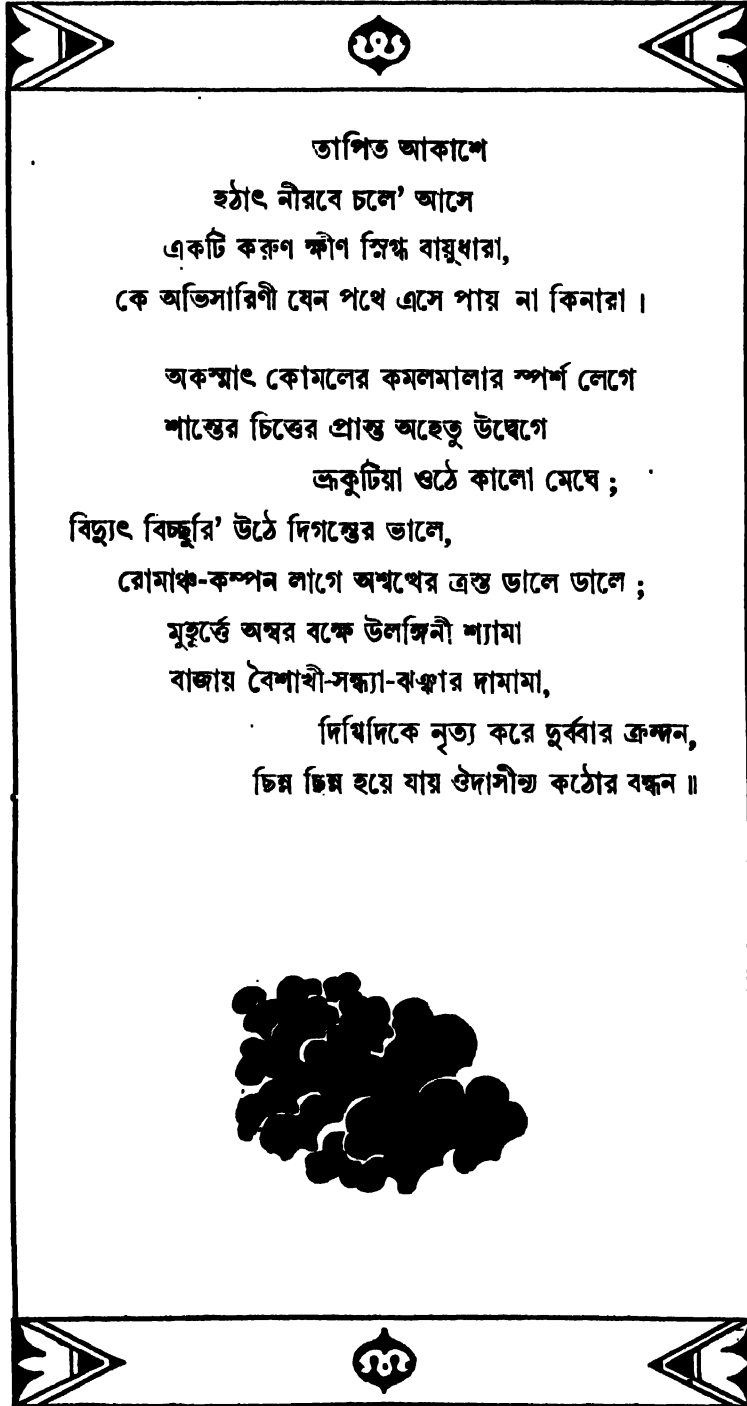 তাপিত আকাশে
হঠাৎ নীরবে চলে' আসে
একটি করুণ ক্ষীণ স্নিগ্ধ বায়ুধারা,
কে অভিসারিণী যেন পথে এসে পায় না কিনারা।
অকস্মাৎ কোমলের কমলমালার স্পর্শ লেগে
শান্তের চিত্তের প্রান্ত অহেতু উদ্বেগে
ভ্রূকুটিয়া ওঠে কালো মেঘে;
বিদ্যুৎ বিচ্ছুরি' উঠে দিগন্তের ভালে,
রোমাঞ্চ-কম্পন লাগে অশ্বত্থের ত্রস্ত ডালে ডালে;
মুহূর্ত্তে অম্বর বক্ষে উলঙ্গিনী শ্যামা
বাজায় বৈশাখী-সন্ধ্যা-ঝঞ্ঝার দামামা,
দিগ্বিদিকে নৃত্য করে দুর্ব্বার ক্রন্দন,
ছিন্ন ছিন্ন হয়ে যায় ঔদাসীন্য কঠোর বন্ধন॥